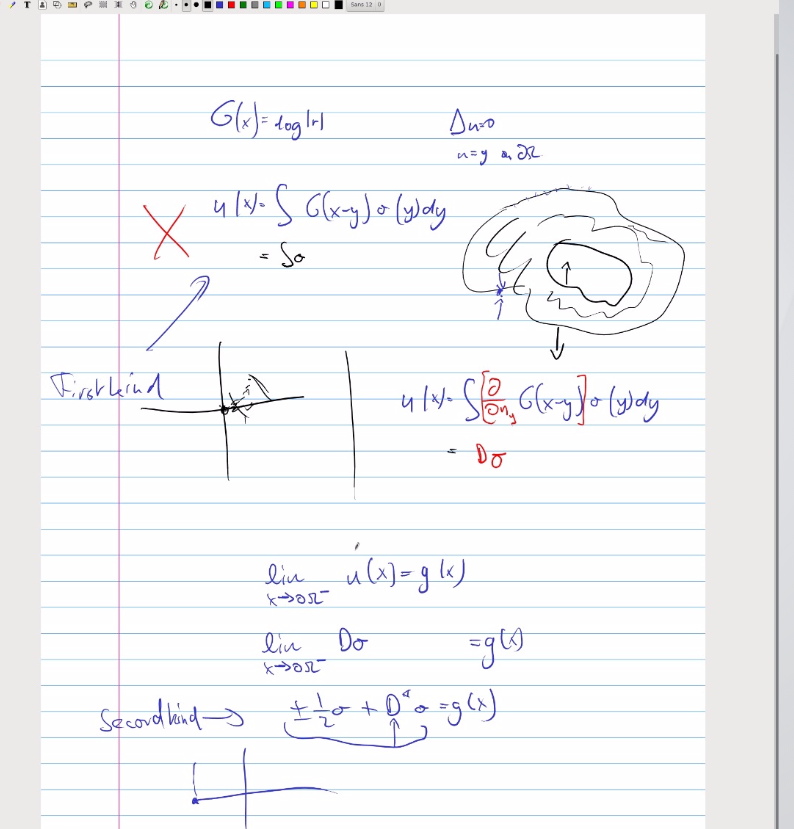 T
Sans 12
G(x)=log|r|
Δu=0
u=g on ∂Ω
u(x)=∫ G(x-y)σ(y)dy
= Sσ
First kind
u(x)=∫[∂/∂n_y G(x-y)]σ(y)dy
= Dσ
lim u(x)=g(x)
x→∂Ω⁻
lim Dσ =g(x)
x→∂Ω⁻
Second kind → ±½σ + D*σ =g(x)